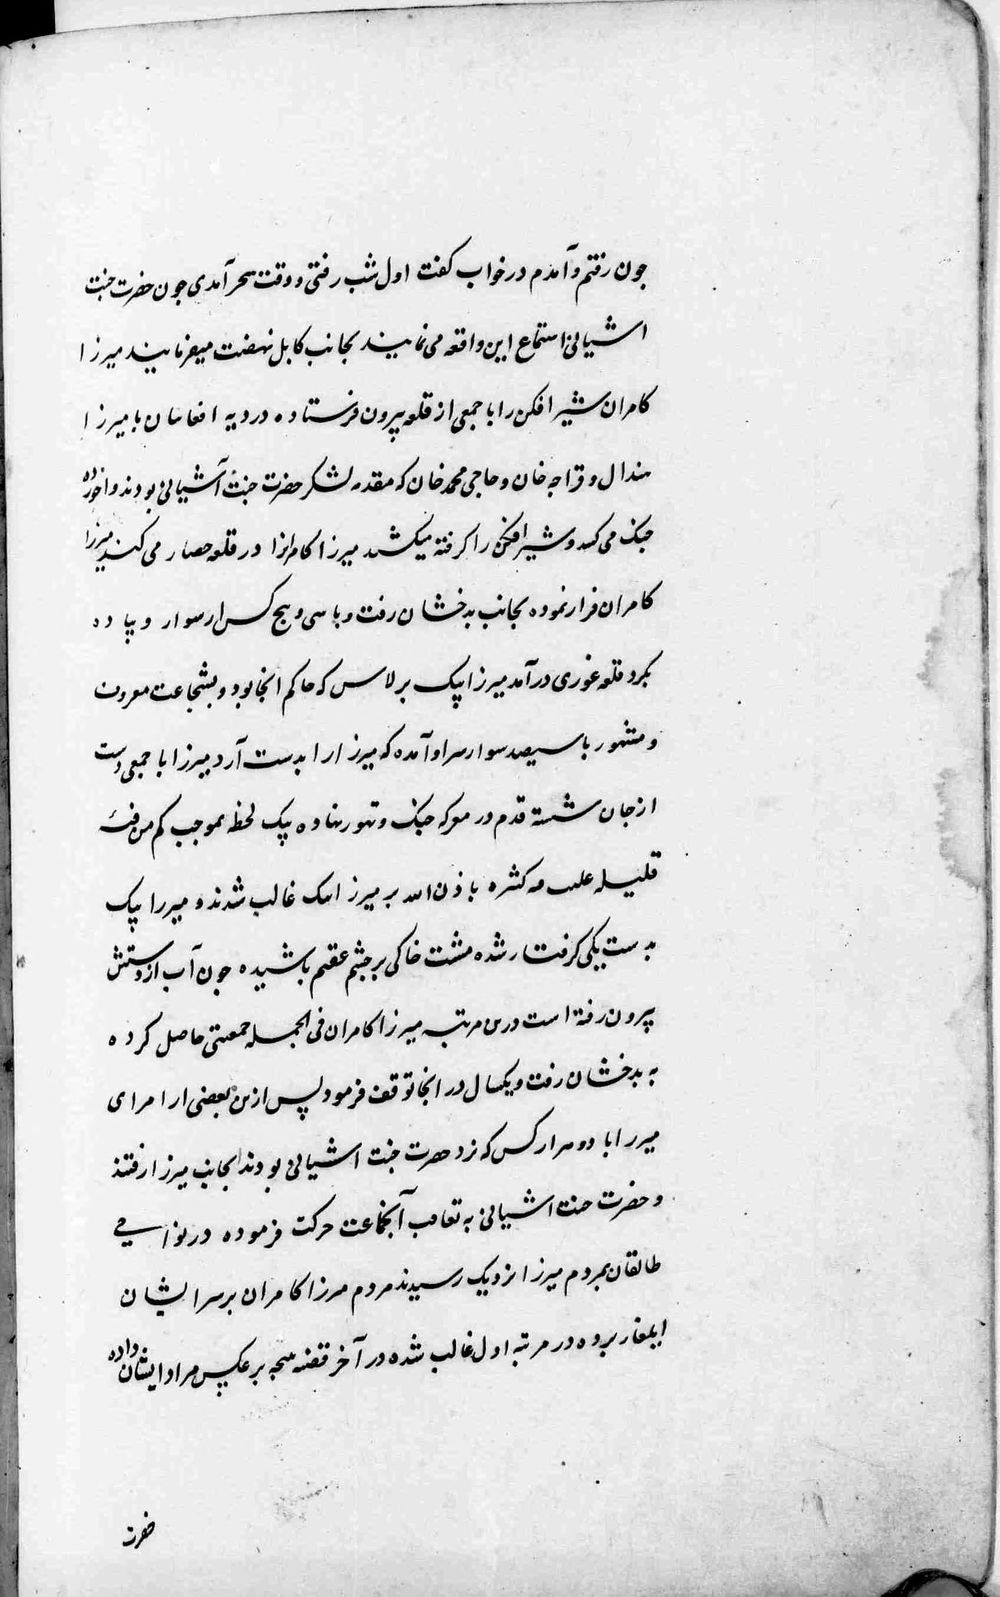 جون رفتم و آمدم در خواب کفت اول شب رفتی و وقت سحر آمدی جون حضرت جنت
اشیانی استماع این واقعه می نمایند بجانب کابل نهضت میفرمایند میرزا
کامران شیر افکن را با جمعی از قلعه بیرون فرستاده در دیه افغانان با میرزا
هندال و قراجه خان و حاجی محمد خان که مقدمه لشکر حضرت جنت آشیانی بودند واخورده
جنک می کند و شیر افکن را کرفته میکشند میرزا کامرانرا در قلعه حصار می کنند میرزا
کامران فرار نموده بجانب بدخشان رفت و با سی و پنج کس از سوار و پیاده
بکرد قلعه غوری در آمد میرزا بیک برلاس که حاکم انجا بود و بشجاعت معروف
و مشهور با سیصد سوار بر سر او آمده که میرزا را بدست آرد میرزا با جمعی دست
از جان شسته قدم در معرکه جنک و تهور نهاده یک لحظه بموجب کم من فئه
قلیله غلبت فئه کثیره باذن الله بر میرزا بیک غالب شدند و میرزا بیک
بدست یکی کرفتار شده مشت خاکی بر چشم عقیم پاشیده جون آب از دستش
بیرون رفته است درین مرتبه میرزا کامران فی الجمله جمعیتی حاصل کرده
به بدخشان رفت و یکسال در انجا توقف فرمود پس ازین بعضی از امرای
میرزا با دو هزار کس که نزد حضرت جنت اشیانی بودند بجانب میرزا رفتند
و حضرت جنت اشیانی به تعاقب آنجماعت حرکت فرموده در نواحی
طالقان بمردم میرزا نزدیک رسیدند مردم میرزا کامران بر سر ایشان
ایلغار برده در مرتبه اول غالب شده در آخر قضیه نتیجه بر عکس مراد ایشان داده
حضرت